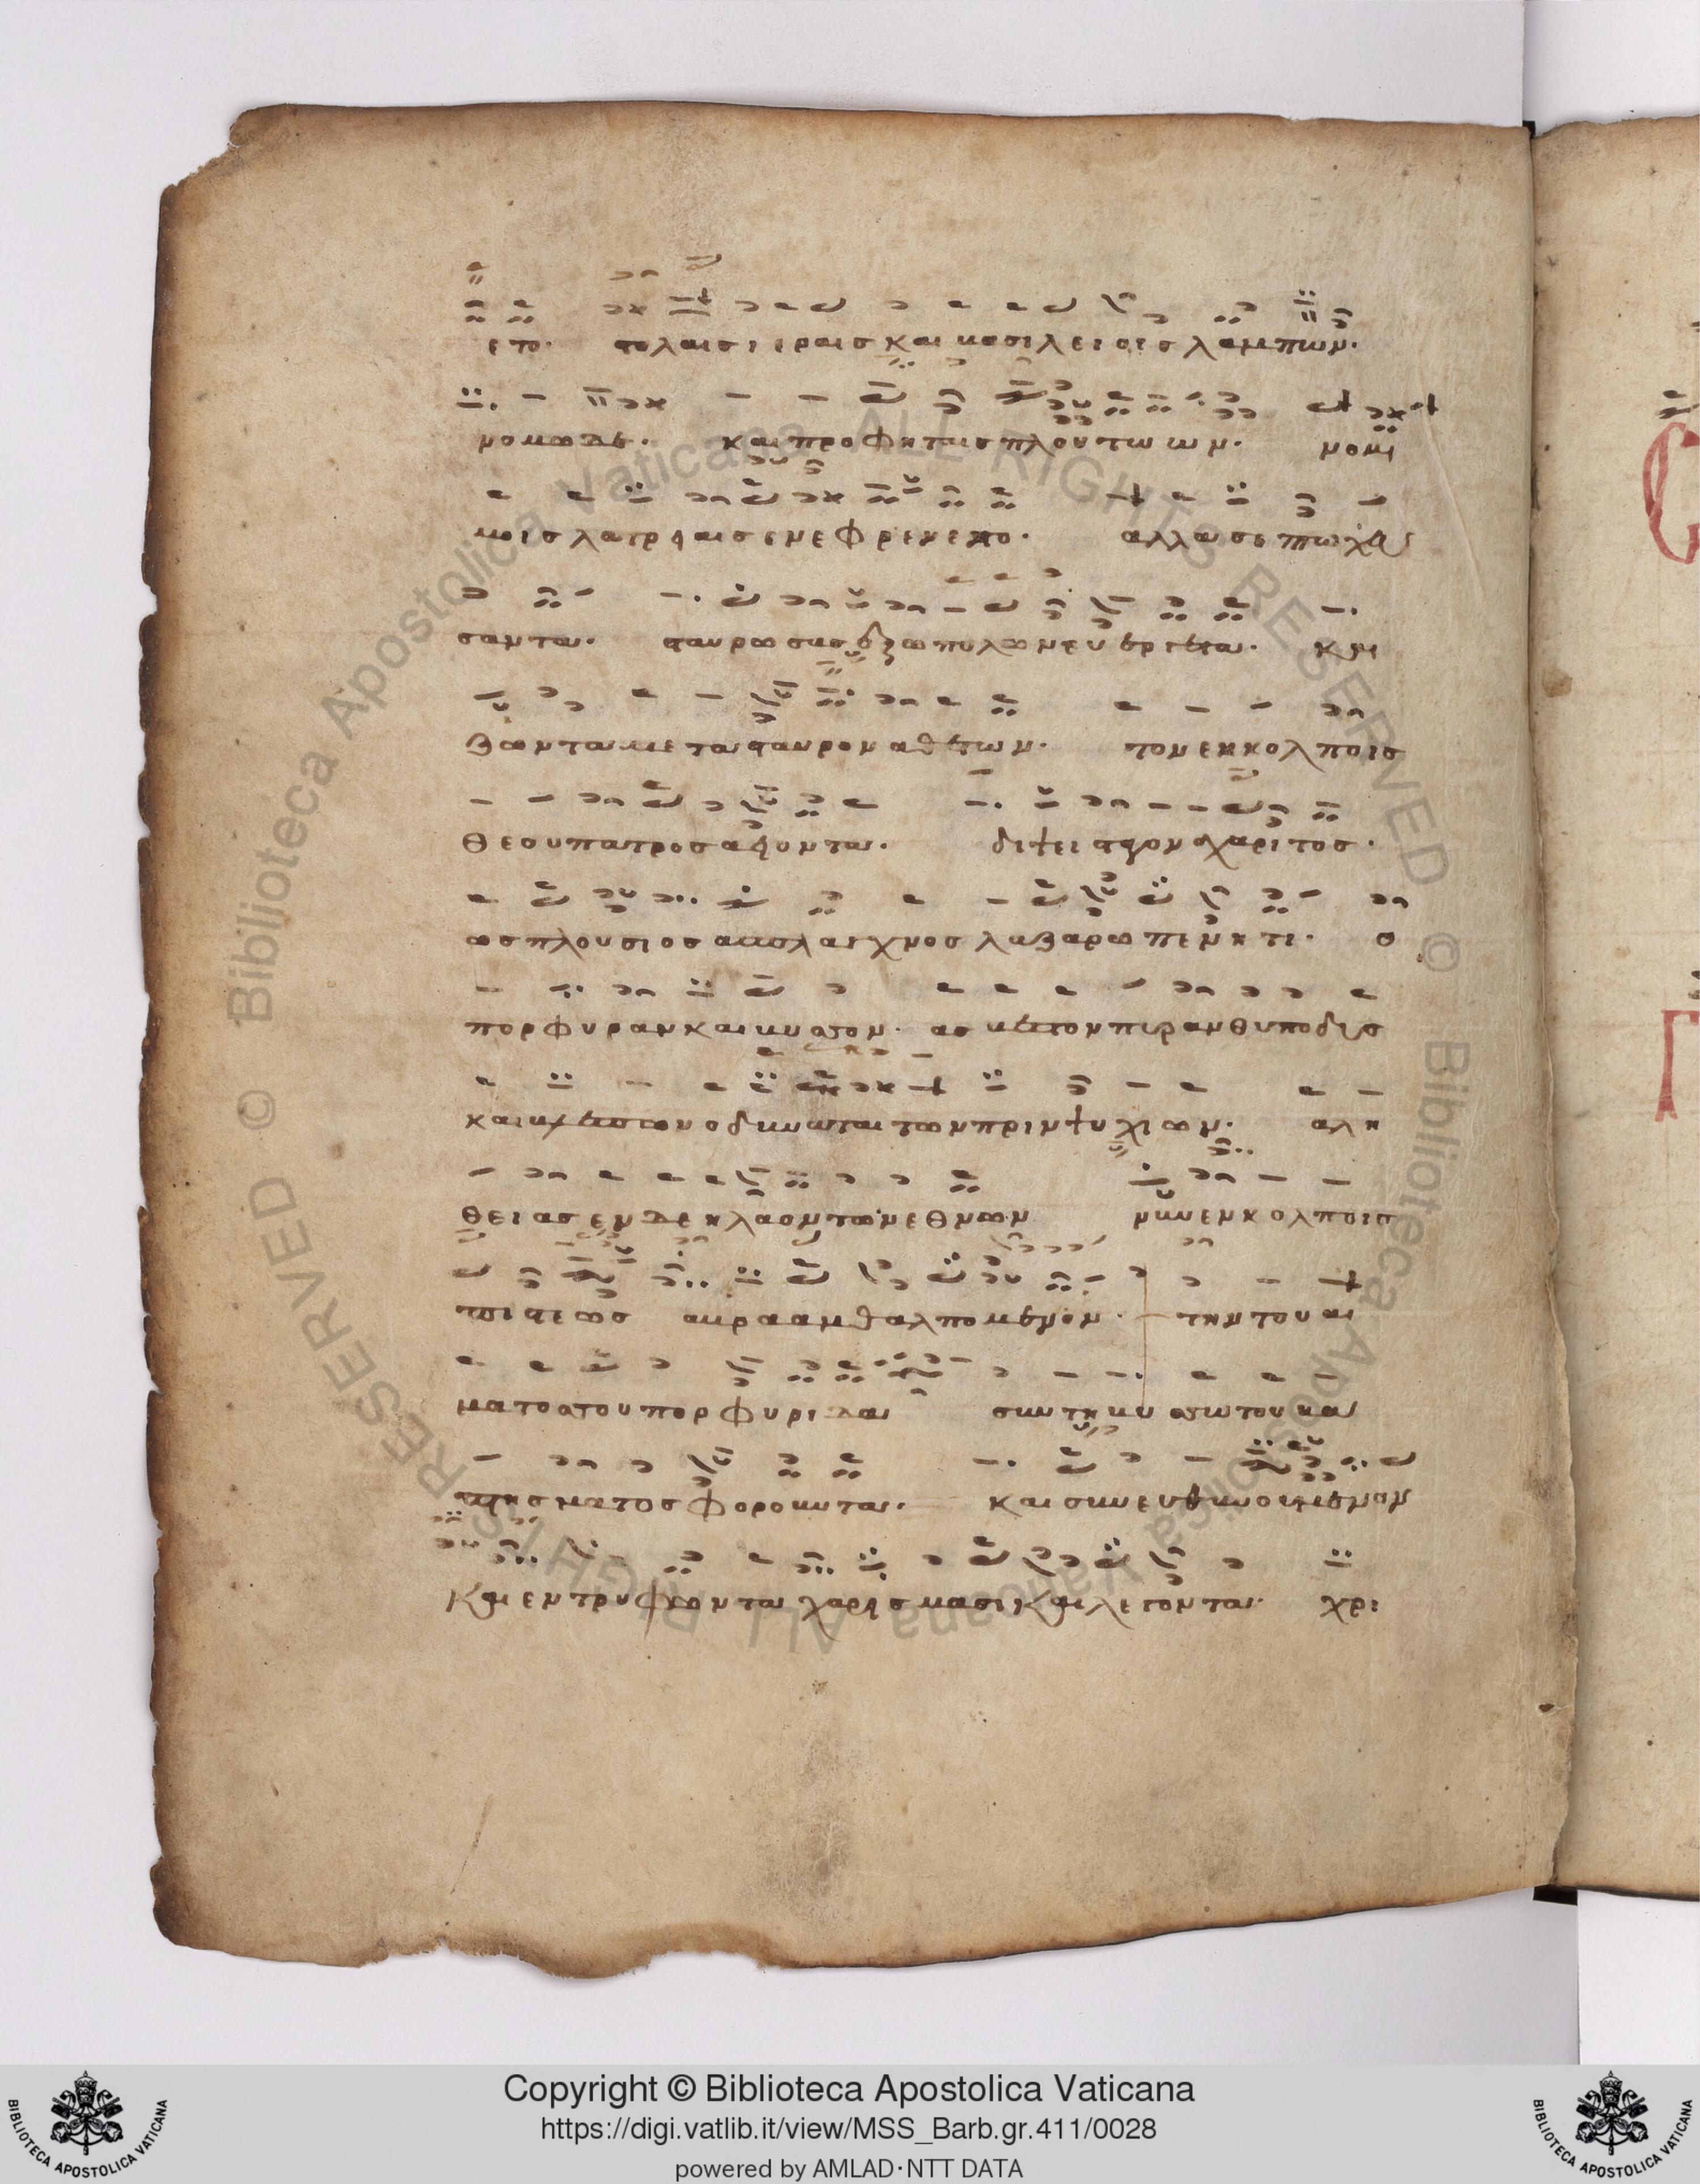 ετο. στολαισ ιεραισ και βασιλειοισ λαμπων.
νομω δε. και προφηταισ πλουτω ων. νομι
μοισ λατρειαισ ενεφρενετο. αλλα σε πτωχευ
σαντα. σταυρωσασ εξω πυλων ευεργετα. και
ζωντα μετα σταυρον αθετων. τον εν κολποισ
θεου πατροσ αει οντα. διψει χαριτοσ.
ωσ πλουσιοσ ασπλαγχνοσ λαζαρω πενητι. ο
πορφυραν και βυσσον. αμφιον
και οδυναται των πριν ευτυχιων. αλη
θειασ ενδεη λαον των εθνων νυν εν κολποισ
πιστεωσ αβρααμ θαλπομενον. την του αι
ματοσ σου πορφυριδα συν τη βυσσω του βα
πτισματοσ φορουντα. και συνευφραινομενον
και εντρυφωντα χαρισμασι και λεγοντα. χρι
Copyright © Biblioteca Apostolica Vaticana
https://digi.vatlib.it/view/MSS_Barb.gr.411/0028
powered by AMLAD·NTT DATA
BIBLIOTECA APOSTOLICA VATICANA
BIBLIOTECA APOSTOLICA VATICANA
© Biblioteca Apostolica Vaticana ALL RIGHTS RESERVED
© Biblioteca Apostolica Vaticana ALL RIGHTS RESERVED